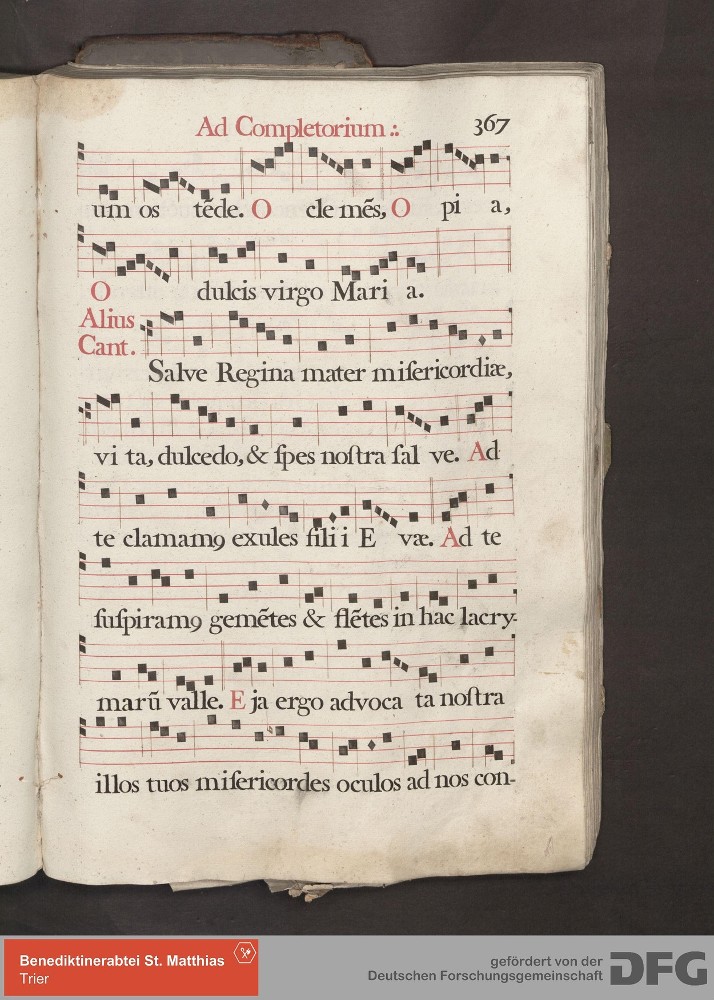 Ad Completorium ⁖ 367
um os tẽde. O cle mẽs, O pi a,
O dulcis virgo Mari a.
Alius
Cant.
Salve Regina mater miſericordiæ,
vi ta, dulcedo, & ſpes noſtra ſal ve. Ad
te clamamꝰ exules filii E væ. Ad te
ſuſpiramꝰ gemẽtes & flẽtes in hac lacry-
marũ valle. E ja ergo advoca ta noſtra
illos tuos miſericordes oculos ad nos con-
Benediktinerabtei St. Matthias
Trier
gefördert von der
Deutschen Forschungsgemeinschaft
DFG